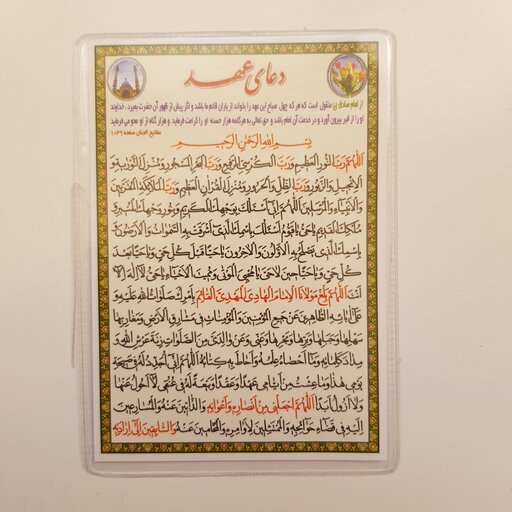 دعای عهد
از امام صادق (ع) منقول است که هر که چهل صباح این عهد را بخواند از یاران قائم ما باشد و اگر پیش از ظهور آن حضرت بمیرد، خداوند
او را از قبر بیرون آورد و در خدمت آن امام باشد و حق تعالی به هر کلمه هزار حسنه او را کرامت فرماید و هزار گناه از او محو می فرماید
مفاتیح الجنان صفحه ۱۰۳۹
بِسْمِ اللهِ الرَّحْمٰنِ الرَّحِیمِ
اَللّٰهُمَّ رَبَّ النُّورِ الْعَظِیمِ وَرَبَّ الْکُرْسِیِّ الرَّفِیعِ وَرَبَّ الْبَحْرِ الْمَسْجُورِ وَمُنْزِلَ التَّوْرٰیةِ وَ
الْاِنْجِیلِ وَالزَّبُورِ وَرَبَّ الظِّلِّ وَالْحَرُورِ وَمُنْزِلَ الْقُرْاٰنِ الْعَظِیمِ وَرَبَّ الْمَلٰائِکَةِ الْمُقَرَّبِینَ
وَالْاَنْبِیٰاءِ وَالْمُرْسَلِینَ اَللّٰهُمَّ اِنِّی اَسْئَلُکَ بِوَجْهِکَ الْکَرِیمِ وَبِنُورِ وَجْهِکَ الْمُنِیرِ وَ
مُلْکِکَ الْقَدِیمِ یٰاحَیُّ یٰاقَیُّومُ اَسْئَلُکَ بِاسْمِکَ الَّذِی اَشْرَقَتْ بِهِ السَّمٰوٰاتُ وَالْاَرَضُونَ
وَبِاسْمِکَ الَّذِی یَصْلَحُ بِهِ الْاَوَّلُونَ وَالْاٰخِرُونَ یٰاحَیّاً قَبْلَ کُلِّ حَیٍّ وَیٰاحَیّاً بَعْدَ
کُلِّ حَیٍّ وَیٰاحَیّاً حِینَ لٰاحَیَّ یٰامُحْیِیَ الْمَوْتٰی وَمُمِیتَ الْاَحْیٰاءِ یٰاحَیُّ لٰا اِلٰهَ اِلّٰا
اَنْتَ اَللّٰهُمَّ بَلِّغْ مَوْلٰانَا الْاِمٰامَ الْهٰادِیَ الْمَهْدِیَّ الْقٰائِمَ بِاَمْرِکَ صَلَوٰاتُ اللهِ عَلَیْهِ وَ
عَلٰی اٰبٰائِهِ الطّٰاهِرِینَ عَنْ جَمِیعِ الْمُؤْمِنِینَ وَالْمُؤْمِنٰاتِ فِی مَشٰارِقِ الْاَرْضِ وَمَغٰارِبِهٰا
سَهْلِهٰا وَجَبَلِهٰا وَبَرِّهٰا وَبَحْرِهٰا وَعَنِّی وَعَنْ وٰالِدَیَّ مِنَ الصَّلَوٰاتِ زِنَةَ عَرْشِ اللهِ وَ
مِدٰادَ کَلِمٰاتِهِ وَمٰا اَحْصٰاهُ عِلْمُهُ وَاَحٰاطَ بِهِ کِتٰابُهُ اَللّٰهُمَّ اِنِّی اُجَدِّدُ لَهُ فِی صَبِیحَةِ
یَوْمِی هٰذٰا وَمٰا عِشْتُ مِنْ اَیّٰامِی عَهْداً وَعَقْداً وَبَیْعَةً لَهُ فِی عُنُقِی لٰا اَحُولُ عَنْهٰا
وَلٰا اَزُولُ اَبَداً اَللّٰهُمَّ اجْعَلْنِی مِنْ اَنْصٰارِهِ وَاَعْوٰانِهِ وَالذّٰابِّینَ عَنْهُ وَالْمُسٰارِعِینَ
اِلَیْهِ فِی قَضٰاءِ حَوٰائِجِهِ وَالْمُمْتَثِلِینَ لِاَوٰامِرِهِ وَالْمُحٰامِینَ عَنْهُ وَالسّٰابِقِینَ اِلٰی اِرٰادَتِهِ